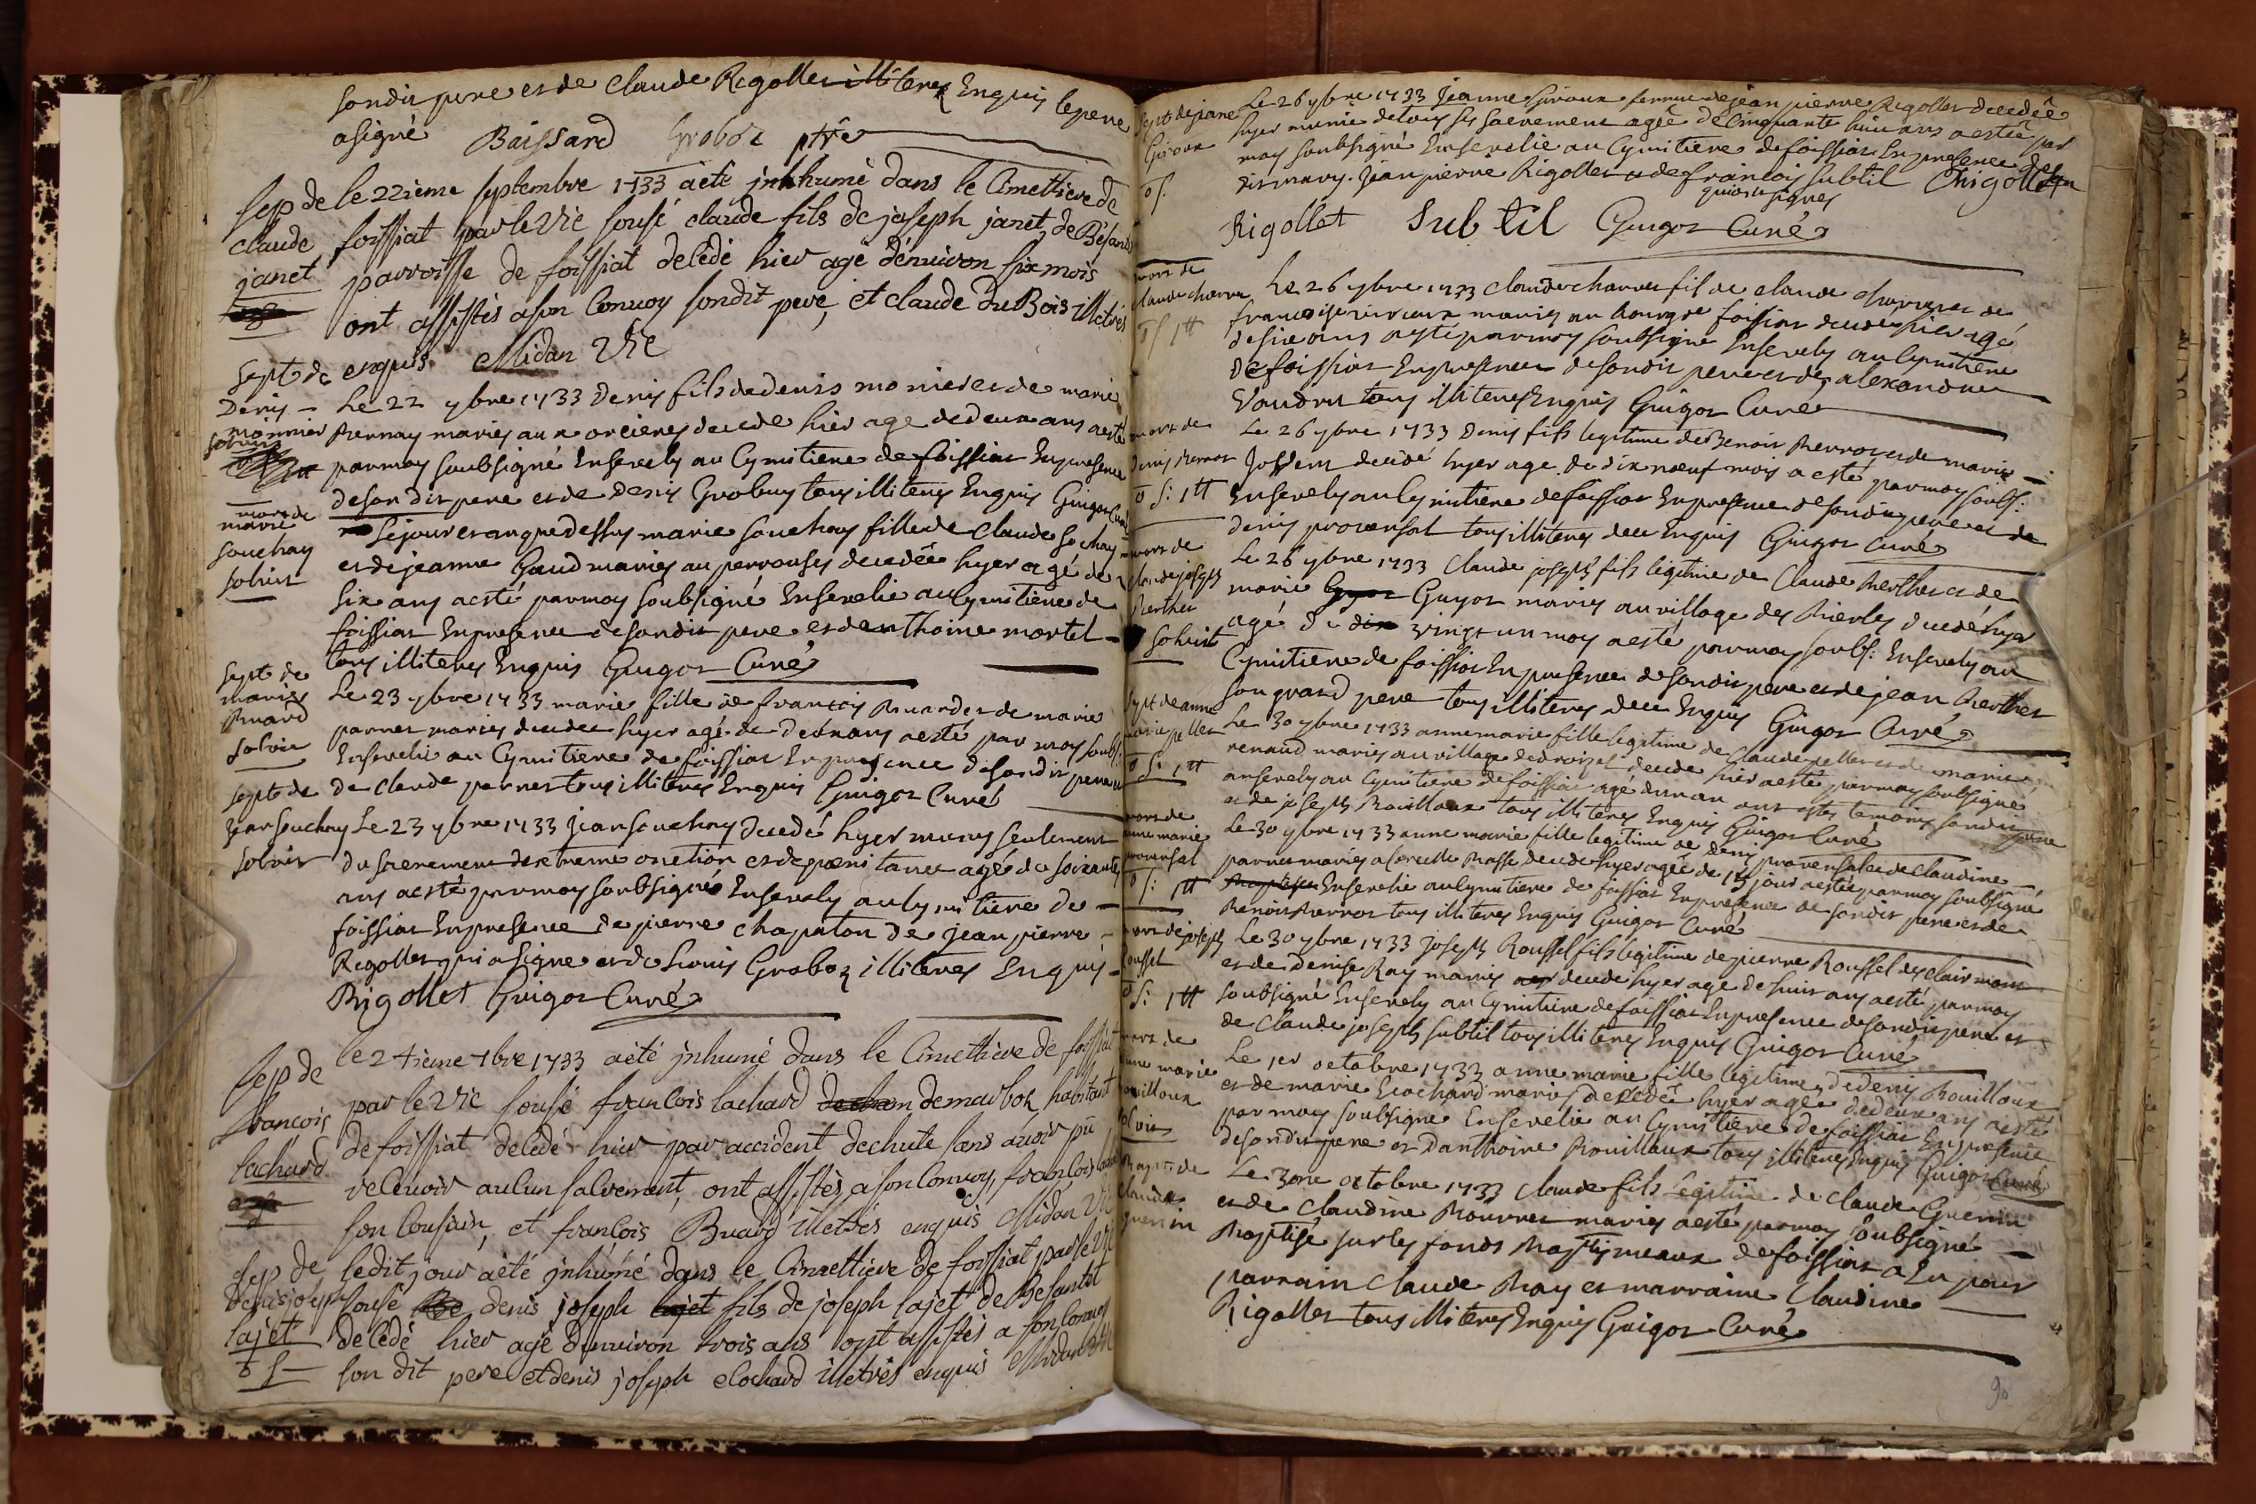 son dit pere et de Claude Rigollet illiterez Enquis le pere
a signé Baissard Groboz ptre
Sep de
claude
janet
le 22ieme septembre 1733 a eté jnhumé dans le Cimettiere de
foissiat par le Vic sousé claude fils de joseph janet, de
parroisse de foissiat decedé hier agé d'énuiron six mois
ont assistés a son Conuoy sondit pere, et claude Du Bois illetrés
enquis Midan Vic
Sept de
Denis
monnier
solvit
Le 22 ybre 1733 Denis fils de denis monier et de marie
Pernay mariés aux orcieres decede hier age de deux ans a esté
par moy soubsigné Ensevely au Cymitiere de foissiat En presence
de son dit pere et de denis Grobuy tous illiterez Enquis Guigot Curé
mort de
marie
souchay
solvit
Le jour et an que dessus marie souchay fille de Claude sochay
et de jeanne Gaud mariés au perrouses decedée hyer agé de
six ans a esté par moy soubsigné Ensevelie au Cymitiere de
foissiat En presence de son dit pere et de anthoine mortel
tous illiterez Enquis Guigot Curé
Sept de
marie
Bruard
solvit
Le 23 ybre 1733 marie fille de francois Bruard et de marie
parnet mariés decedee hyer agé de Deux ans a esté par moy soubs:
Ensevelie au Cymitiere de foissiat En presence de son dit pere et
de Claude parnet tous illiterez Enquis Guigot Curé
Sept de
Jean souchay
solvit
Le 23 ybre 1733 Jean souchay decedé hyer muny seulement
du sacrement d'extreme onction et de poenitance agé de soixante
ans a esté par moy soubsigné Ensevely au Cymitiere de
foissiat En presence de pierre chapaton de jean pierre
Rigollet qui a signé et de Louis Groboz illiterez Enquis
Rigollet Guigot Curé
Sep de
francois
lachard
le 24ieme 7bre 1733 a eté jnhumé dans le Cimettiere de foissiat
par le Vic sousé francois lachard de marboz habitant
de foissiat decedé hier par accident de chute sans auoir pû
receuoir aucun sacrement, ont assistés a son Conuoy, francois
son Cousin, et francois Bruard illetrés enquis Midan Vic
Sep de
denis joseph
lajet
ō S
ledit jour a eté jnhumé dans le Cimettiere de foissiat par le Vic
sousé denis joseph fils de joseph lajet de Besantet
decedé hier agé d'enuiron trois ans ont assistés a son Conuoy
son dit pere et denis joseph clochard illetrés enquis Midan Vic
Sept de jeane
Giroux
ō S.
Le 26 ybre 1733 Jeanne Giroux femme de jean pierre Rigollet decedée
hyer munie de tous ses sacrement agée de Cinquante huit ans a estée par
moy soubsigné Ensevelie au Cymitiere de foissiat En presence de son
dit mary Jean pierre Rigollet et de francois subtil
qui ont signes
Rigollet Subtil Guigot Curé
mort de
claude charvet
ō S 1tt
Le 26 ybre 1733 Claude charvet fils de claude charvet et de
francoise mariés au bourg de foissiat decede hier agé
de six ans a esté par moy soubsigné Ensevely au Cymitiere
De foissiat En presence de son dit pere et de alexandre
Vaudru tous illiterez Enquis Guigot Curé
mort de
denis Perrot
ō S: 1tt
Le 26 ybre 1733 Denis fils legitime de Benoit Perrot et de marie
decedé hyer agé de dix neuf mois a esté par moy soubs:
Ensevely au Cymitiere de foissiat En presence de son dit pere et de
denis provensal tous illiterez dece Enquis Guigot Curé
mort de
claude joseph
Berthet
solvit
Le 26 ybre 1733 Claude joseph fils legitime de Claude Berthet et de
marie Guyot mariés au village des decedé hyer
agé de vingt un moy a esté par moy soubs: Ensevely au
Cymitiere de foissiat En presence de son dit pere et de jean Berthet
son grand pere tous illiterez dece Enquis Guigot Curé
Sept de anne
marie pellet
ō S: 1tt
Le 30 ybre 1733 anne marie fille legitime de Claude pellet et de marie
renaud mariés au village decede hier a esté par moy soubsigné
ensevely au Cymitiere de foissiat agé d'un an ont estés temoins son dit pere
et de joseph Bouilloux tous illiterez Enquis Guigot Curé
mort de
anne marie
provensal
ō S: 1tt
Le 30 ybre 1733 anne marie fille legitime de denis provensal et de Claudine
parnet mariés a decede hyer agée de 15 jour a estée par moy soubsigné
Ensevelie au Cymitiere de foissiat En presence de son dit pere et de
Benoit Perrot tous illiterez Enquis Guigot Curé
mort de joseph
Roussel
ō S: 1tt
Le 30 ybre 1733 joseph Roussel fils legitime de pierre Roussel des
et de Denise Ray mariés decede hyer age de huit ans a esté par moy
soubsigné Ensevely au Cymitiere de foissiat En presence de son dit pere et
de Claude joseph subtil tous illiterez Enquis Guigot Curé
mort de
anne marie
Bouilloux
solvit
Le 1er octobre 1733 anne marie fille legitime de denis Bouilloux
et de marie mariés decedée hyer agée de deux ans a esté
par moy soubsigné Ensevelie au Cymitiere de foissiat En presence
de son dit pere et D'anthoine Bouilloux tous illiterez Enquis Guigot Curé
Bapt. de
claude
guerin
Le 3me octobre 1733 Claude fils legitime de Claude Guerin
et de Claudine Bouvret mariés a esté par moy soubsigné
Baptisé sur les fonds Baptismeaux de foissiat a Eu pour
parrain Claude Ray et marraine Claudine
Rigollet tous illiterez Enquis Guigot Curé
90